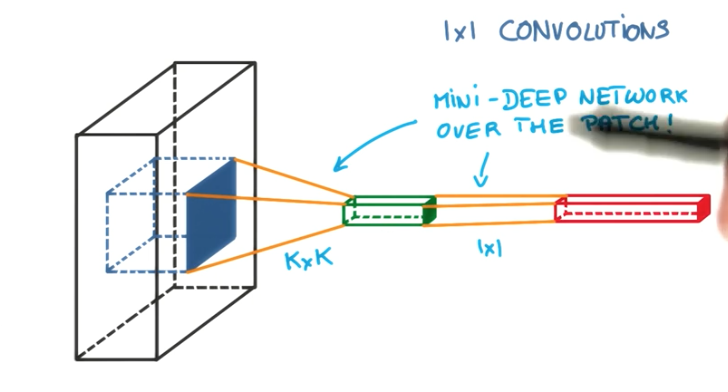 1x1 CONVOLUTIONS
MINI-DEEP NETWORK
OVER THE PATCH!
KxK
1x1